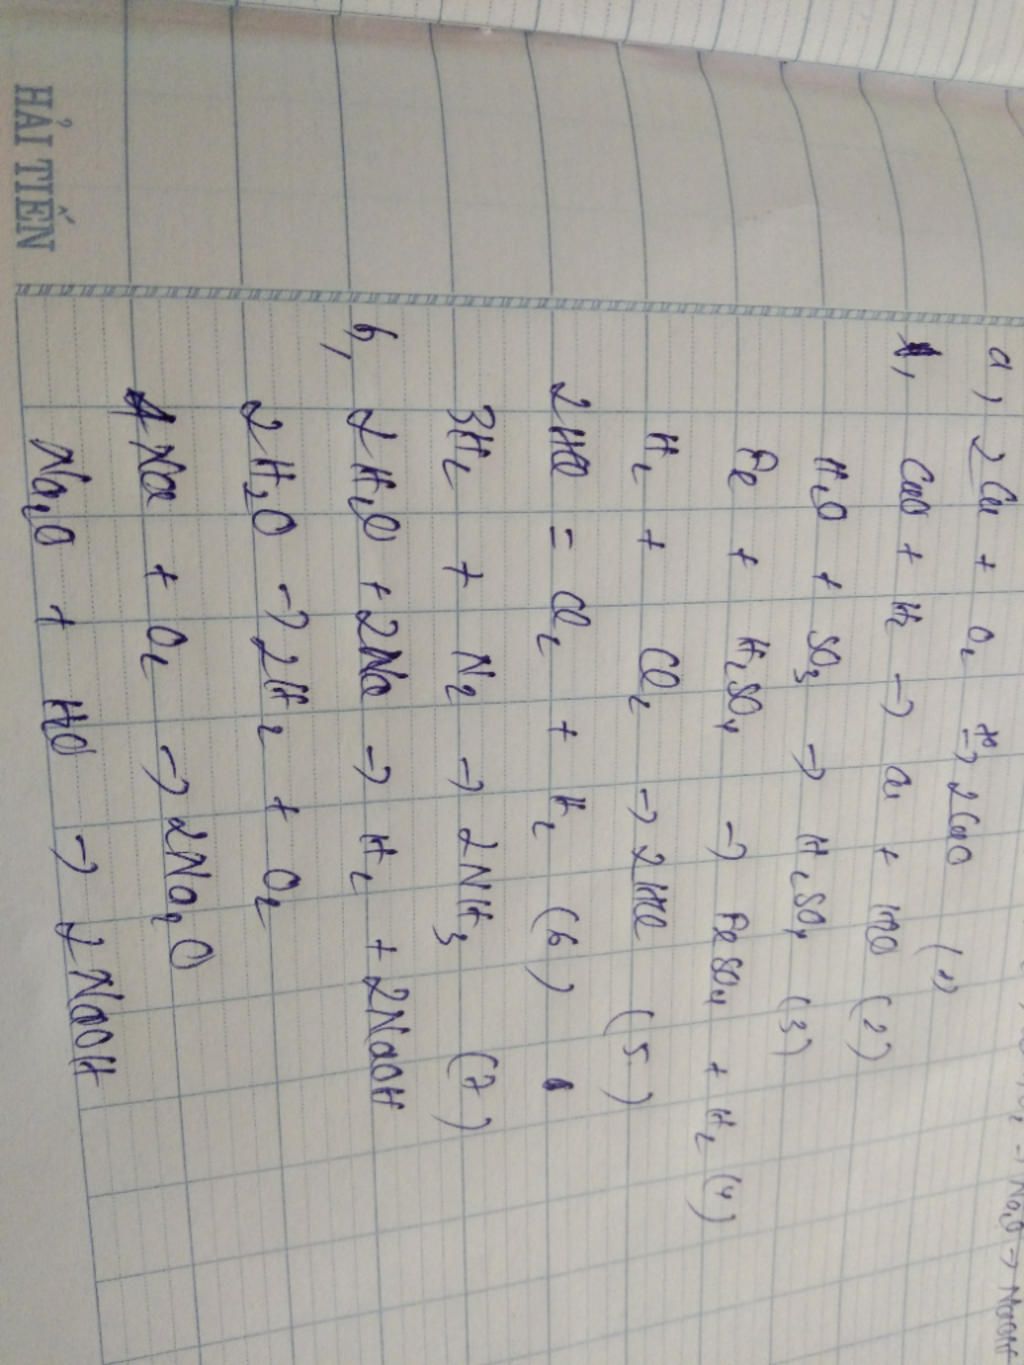 → Na₂O → NaOH
a, 2Cu + O₂ t° → 2CuO (1)
CuO + H₂ → Cu + H₂O (2)
H₂O + SO₃ → H₂SO₄ (3)
Fe + H₂SO₄ → FeSO₄ + H₂ (4)
H₂ + Cl₂ → 2HCl (5)
2HCl = Cl₂ + H₂ (6)
3H₂ + N₂ → 2NH₃ (7)
b, 2H₂O + 2Na → H₂ + 2NaOH
2H₂O → 2H₂ + O₂
4Na + O₂ → 2Na₂O
Na₂O + H₂O → 2NaOH
HẢI TIẾN